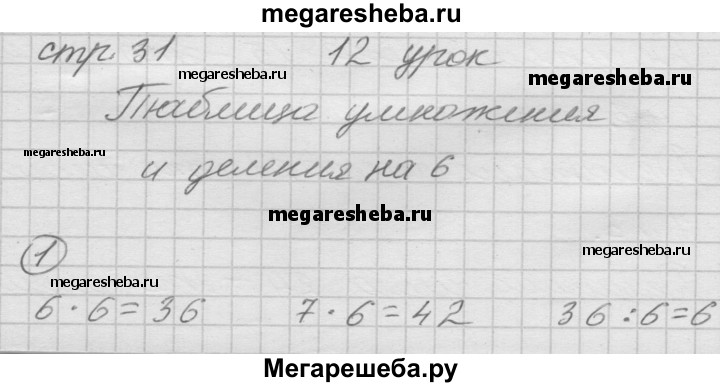 megaresheba.ru
стр. 31 12 урок
megaresheba.ru
megaresheba.ru
Таблица умножения
megaresheba.ru
и деления на 6
megaresheba.ru
1
megaresheba.ru
megaresheba.ru
6 · 6 = 36 7 · 6 = 42 36 : 6 = 6
Мегарешеба.ру